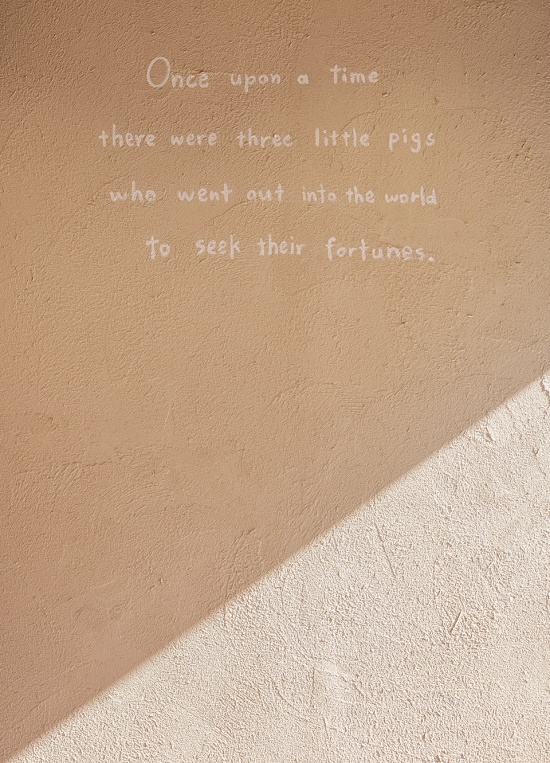 Once upon a time
there were three little pigs
who went out into the world
to seek their fortunes.